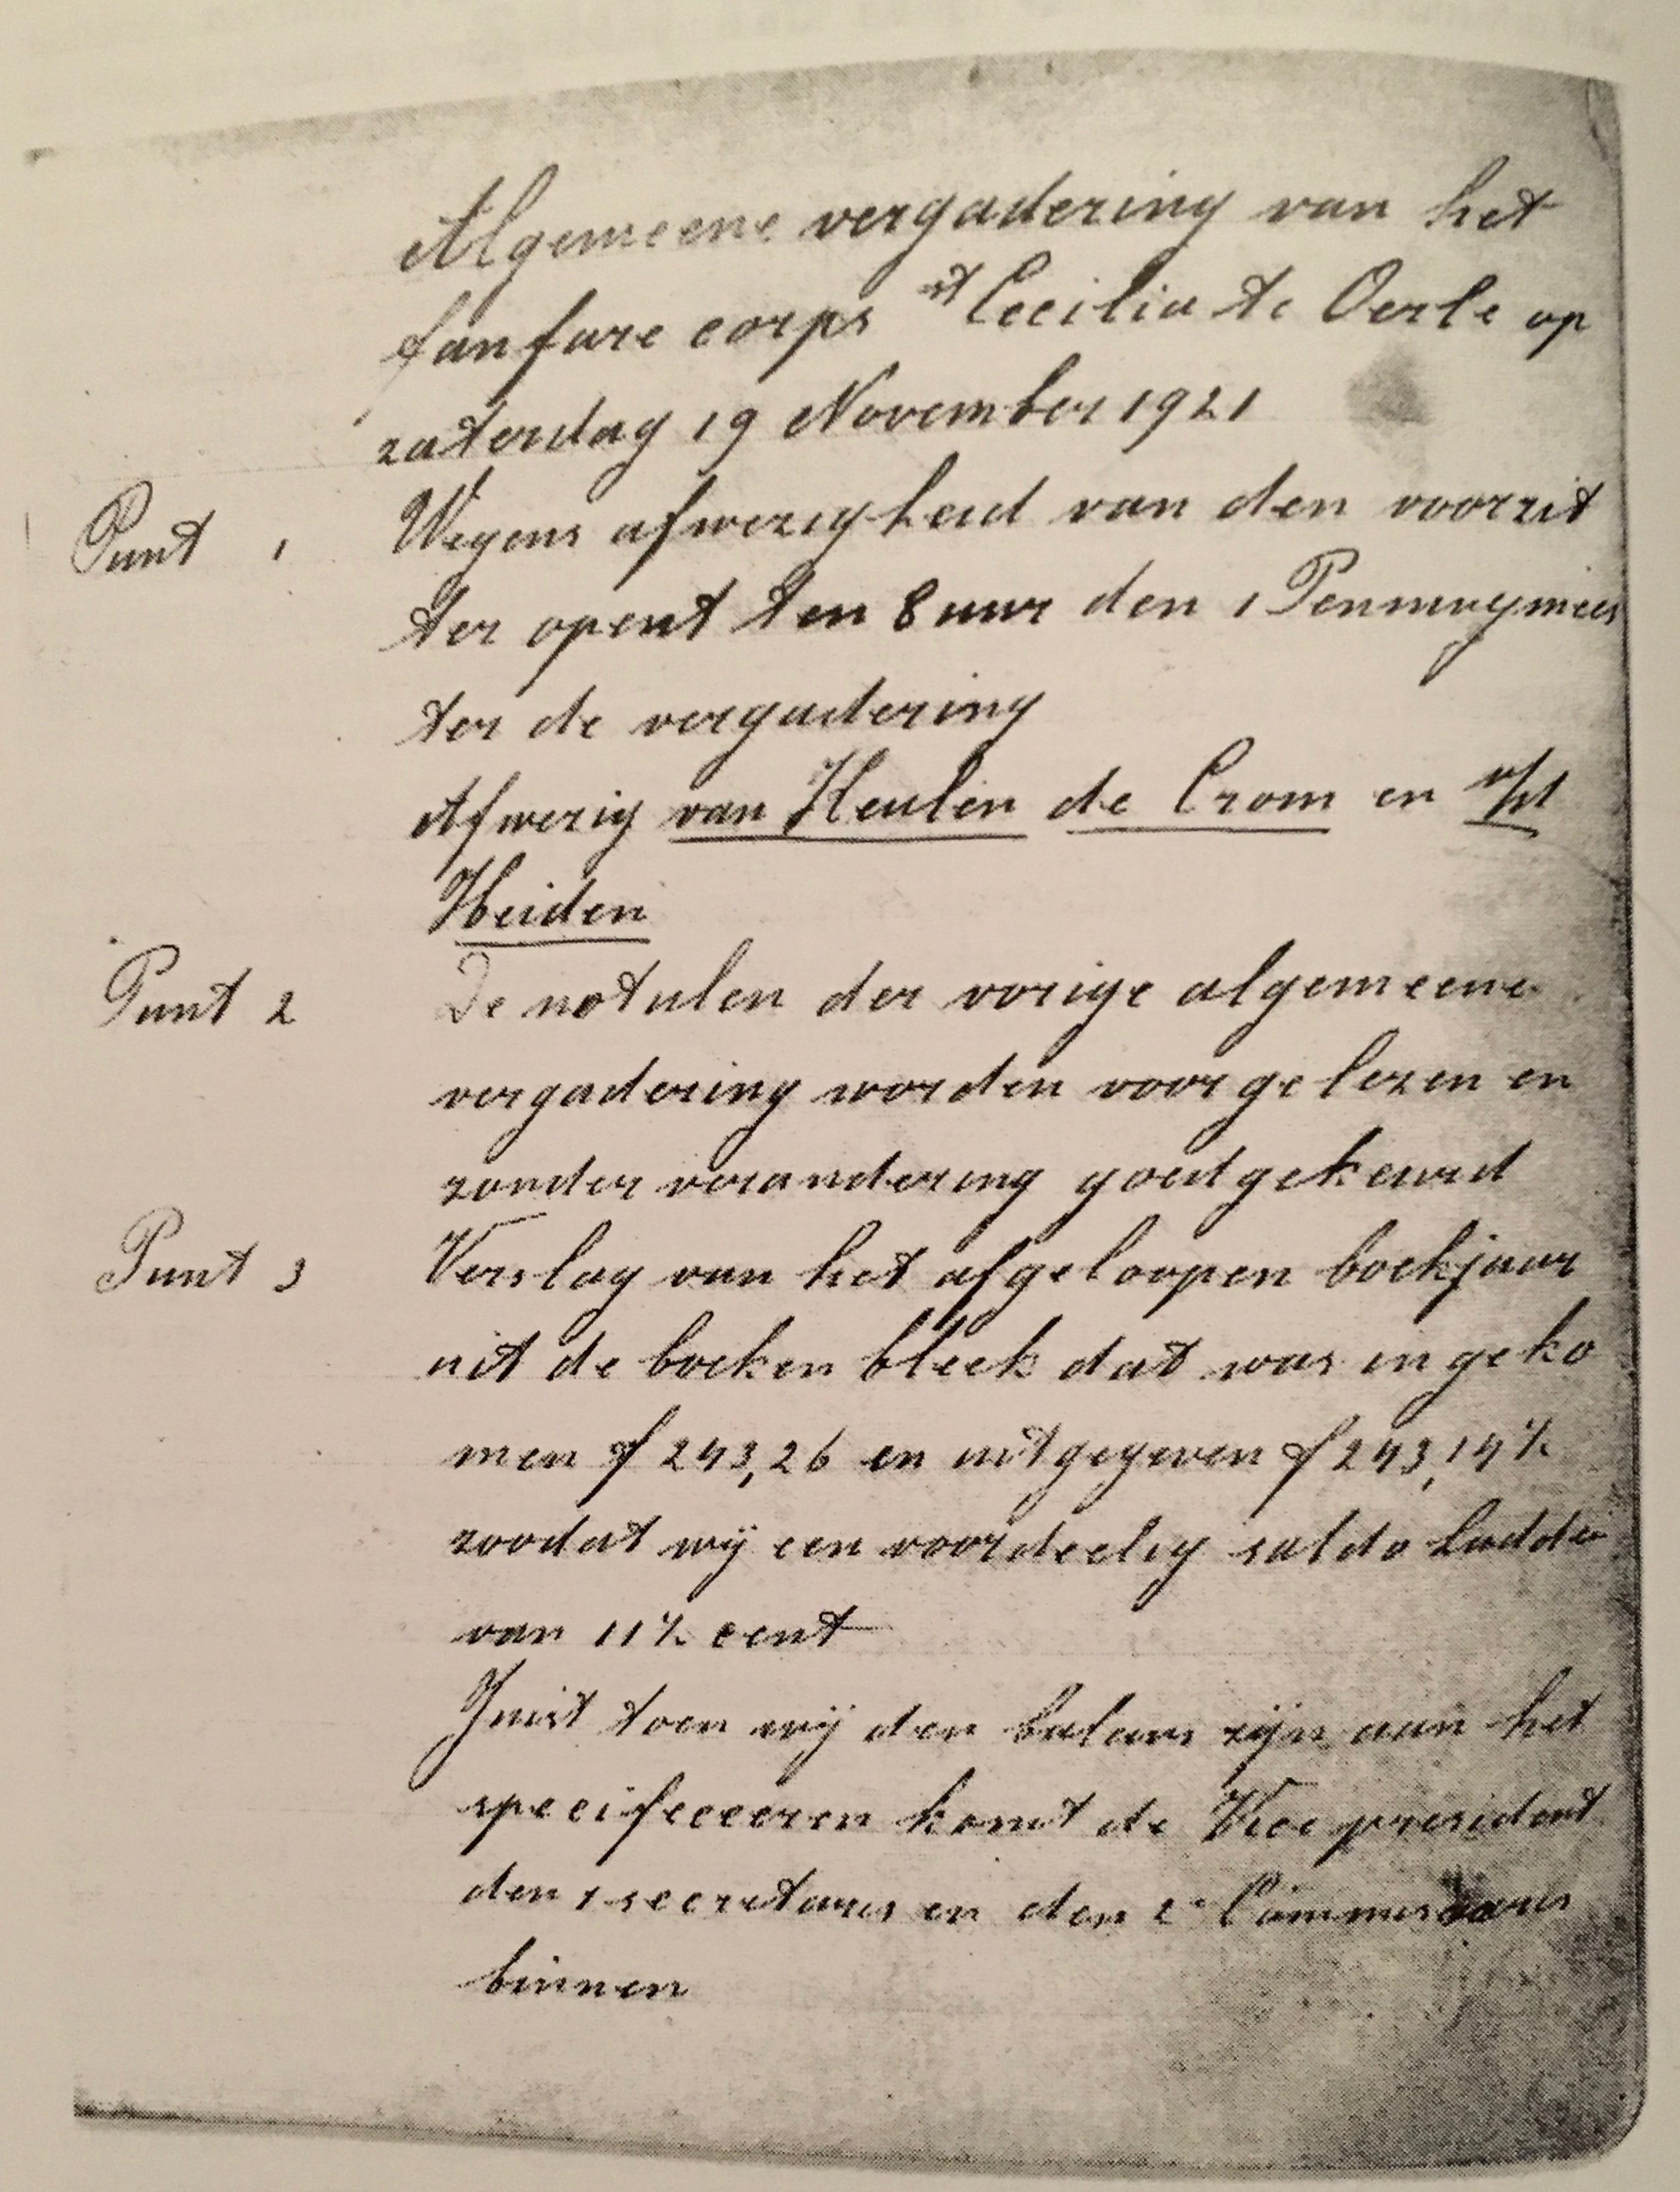 Algemeene vergadering van het
fanfare corps st Cecilia te Oerle op
zaterdag 19 November 1921
Punt 1 Wegens afwezigheid van den voorzit
ter opent ten 8 uur den 1 Penningmees
ter de vergadering
Afwezig van Heulen de Crom en v/d
Heiden
Punt 2 De notulen der vorige algemeene
vergadering worden voorgelezen en
zonder verandering goedgekeurd
Punt 3 Verslag van het afgeloopen boekjaar
uit de boeken bleek dat was ingeko
men f 243,26 en uitgegeven f 243,14½
zoodat wij een voordeelig saldo hadde
van 11½ cent
Juist toen wij den balans zijn aan het
specifeceeren komt de Vice president
den 1 secretaris en den 2e Commissaris
binnen